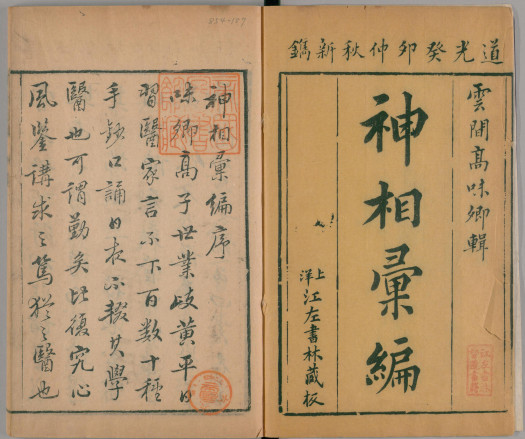 道光癸卯仲秋新鐫
雲間高味卿輯
神相彙編
上洋江左書林藏板
神相彙編序
味卿高子世業岐黃平日
習醫家言不下百數十種
手鈔口誦日夜不輟其學
醫也可謂勤矣比復究心
風鑒講求之篤猶之醫也